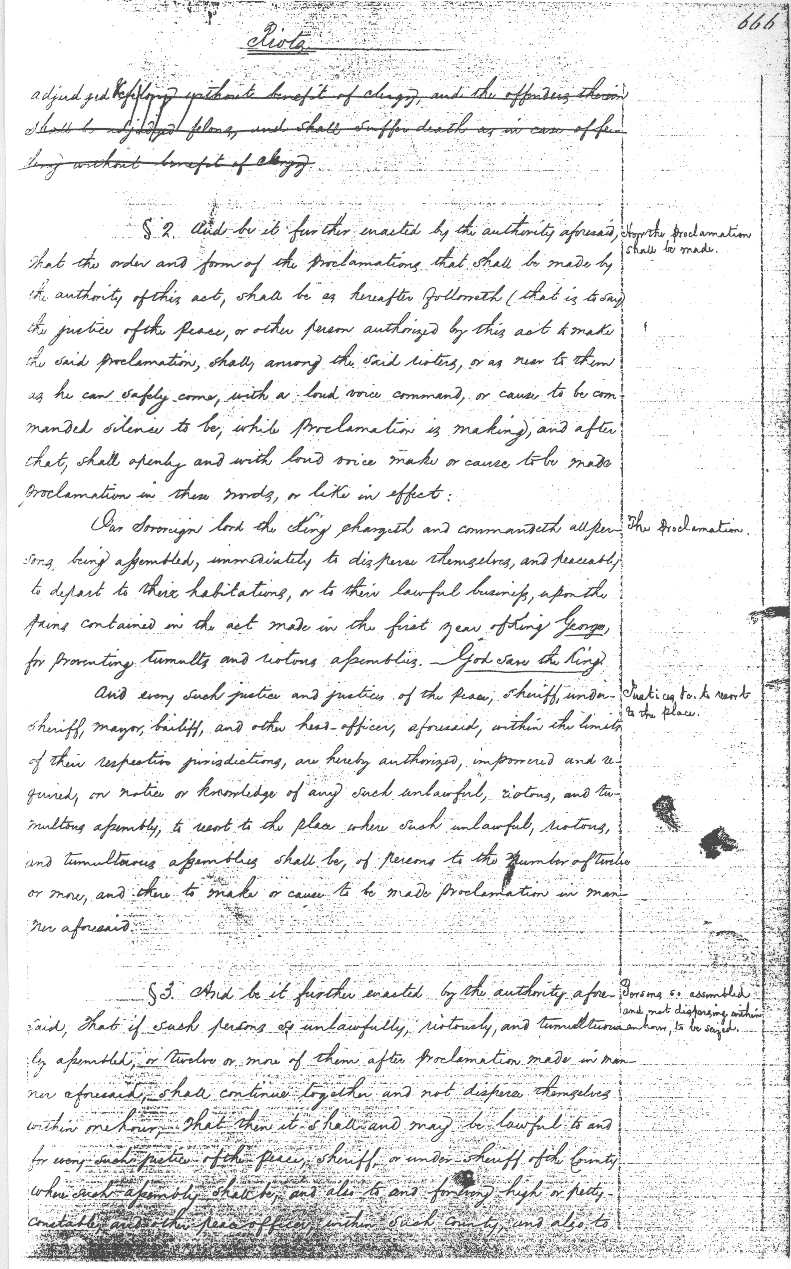 666
Riots.
adjudged felony without benefit of clergy, and the offenders therein
shall be adjudged felons, and shall suffer death as in case of fe-
lony without benefit of clergy.
§ 2. And be it further enacted by the authority aforesaid,
How the proclamation
shall be made.
That the order and form of the Proclamations that shall be made by
the authority of this act, shall be as hereafter followeth (that is to say)
the justice of the Peace, or other person authorized by this act to make
the said Proclamation, shall, among the said rioters, or as near to them
as he can safely come, with a loud voice command, or cause to be com-
manded silence to be, while Proclamation is making, and after
that, shall openly and with loud voice make or cause to be made
Proclamation in these words, or like in effect:
Our Sovereign lord the King chargeth and commandeth all per-
The Proclamation.
sons, being assembled, immediately to disperse themselves, and peaceably
to depart to their habitations, or to their lawful business, upon the
pains contained in the act made in the first year of King George,
for preventing tumults and riotous assemblies. — God save the King.
And every such justice and justices of the peace, sheriff, under-
Justices &c. to resort
to the place.
sheriff, mayor, bailiff, and other head-officer, aforesaid, within the limits
of their respective jurisdictions, are hereby authorized, impowered and re-
quired, on notice or knowledge of any such unlawful, riotous, and tu-
multous assembly, to resort to the place where such unlawful, riotous,
and tumultuous assemblies shall be, of persons to the number of twelve
or more, and there to make or cause to be made Proclamation in man-
ner aforesaid.
§ 3. And be it further enacted by the authority afore-
Persons so assembled
and not dispersing within
an hour, to be seized.
said, That if such persons so unlawfully, riotously, and tumultuous-
ly assembled, or twelve or more of them after Proclamation made in man-
ner aforesaid, shall continue together and not disperse themselves
within one hour, That then it shall and may be lawful to and
for every such justice of the Peace, sheriff, or under-sheriff of the County
where such assembly shall be, and also to and for every high or petty-
constable, and other peace officer, within such county, and also to